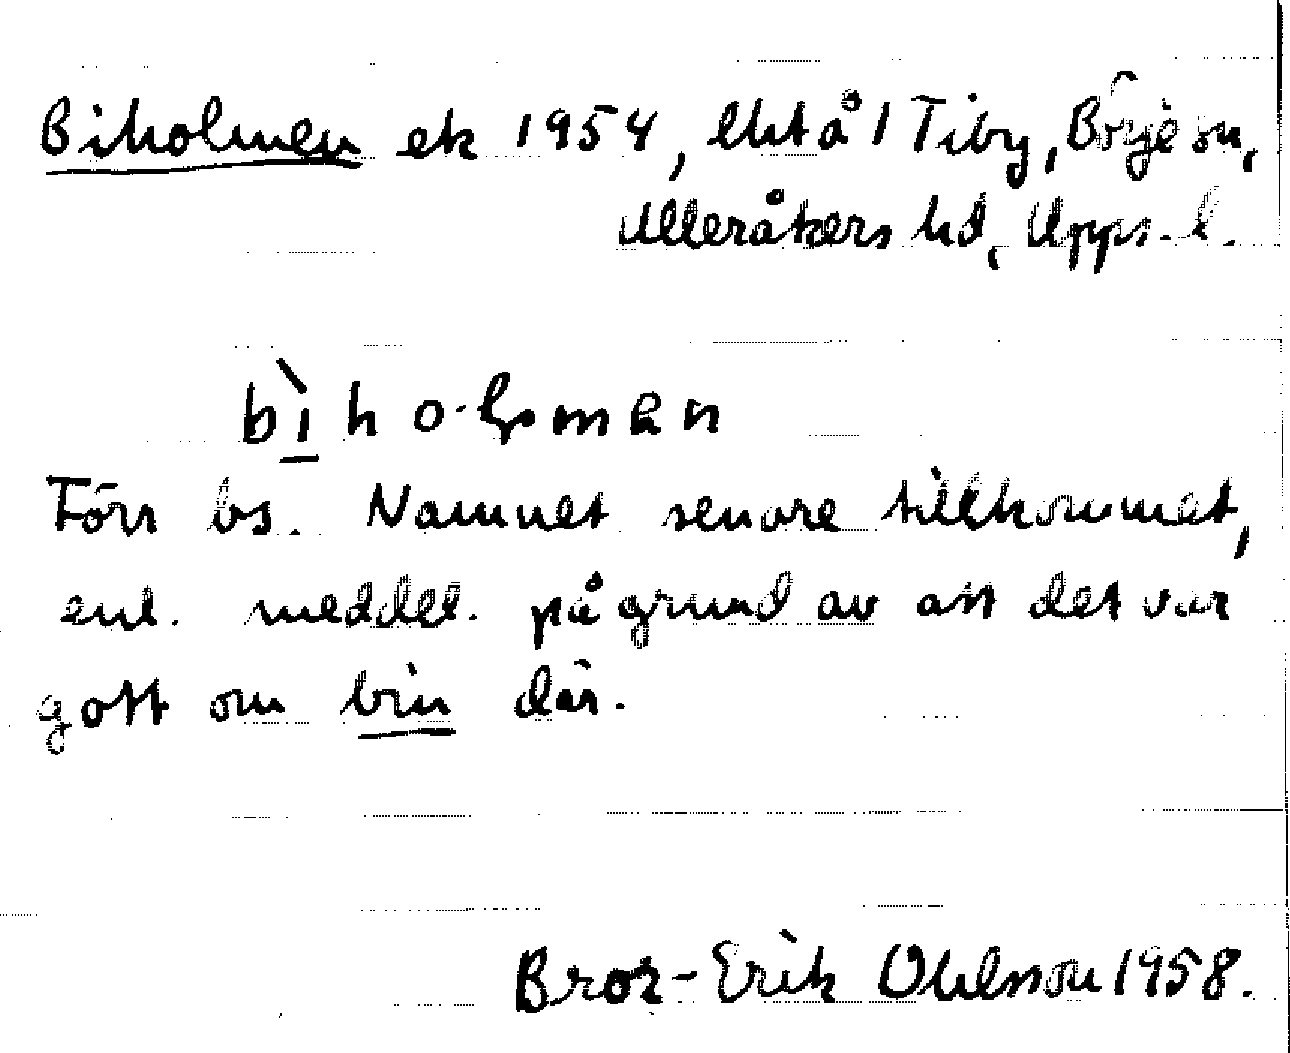 Biholmen ek 1954, Ekt å 1 Tiby, Börje sn,
Ulleråkers hd, Upps. l.
bìho·lmen
Förr bs. Namnet senare tillkommet,
enl. meddel. på grund av att det var
gott om bin där.
Bror-Erik Ohlsson 1958.